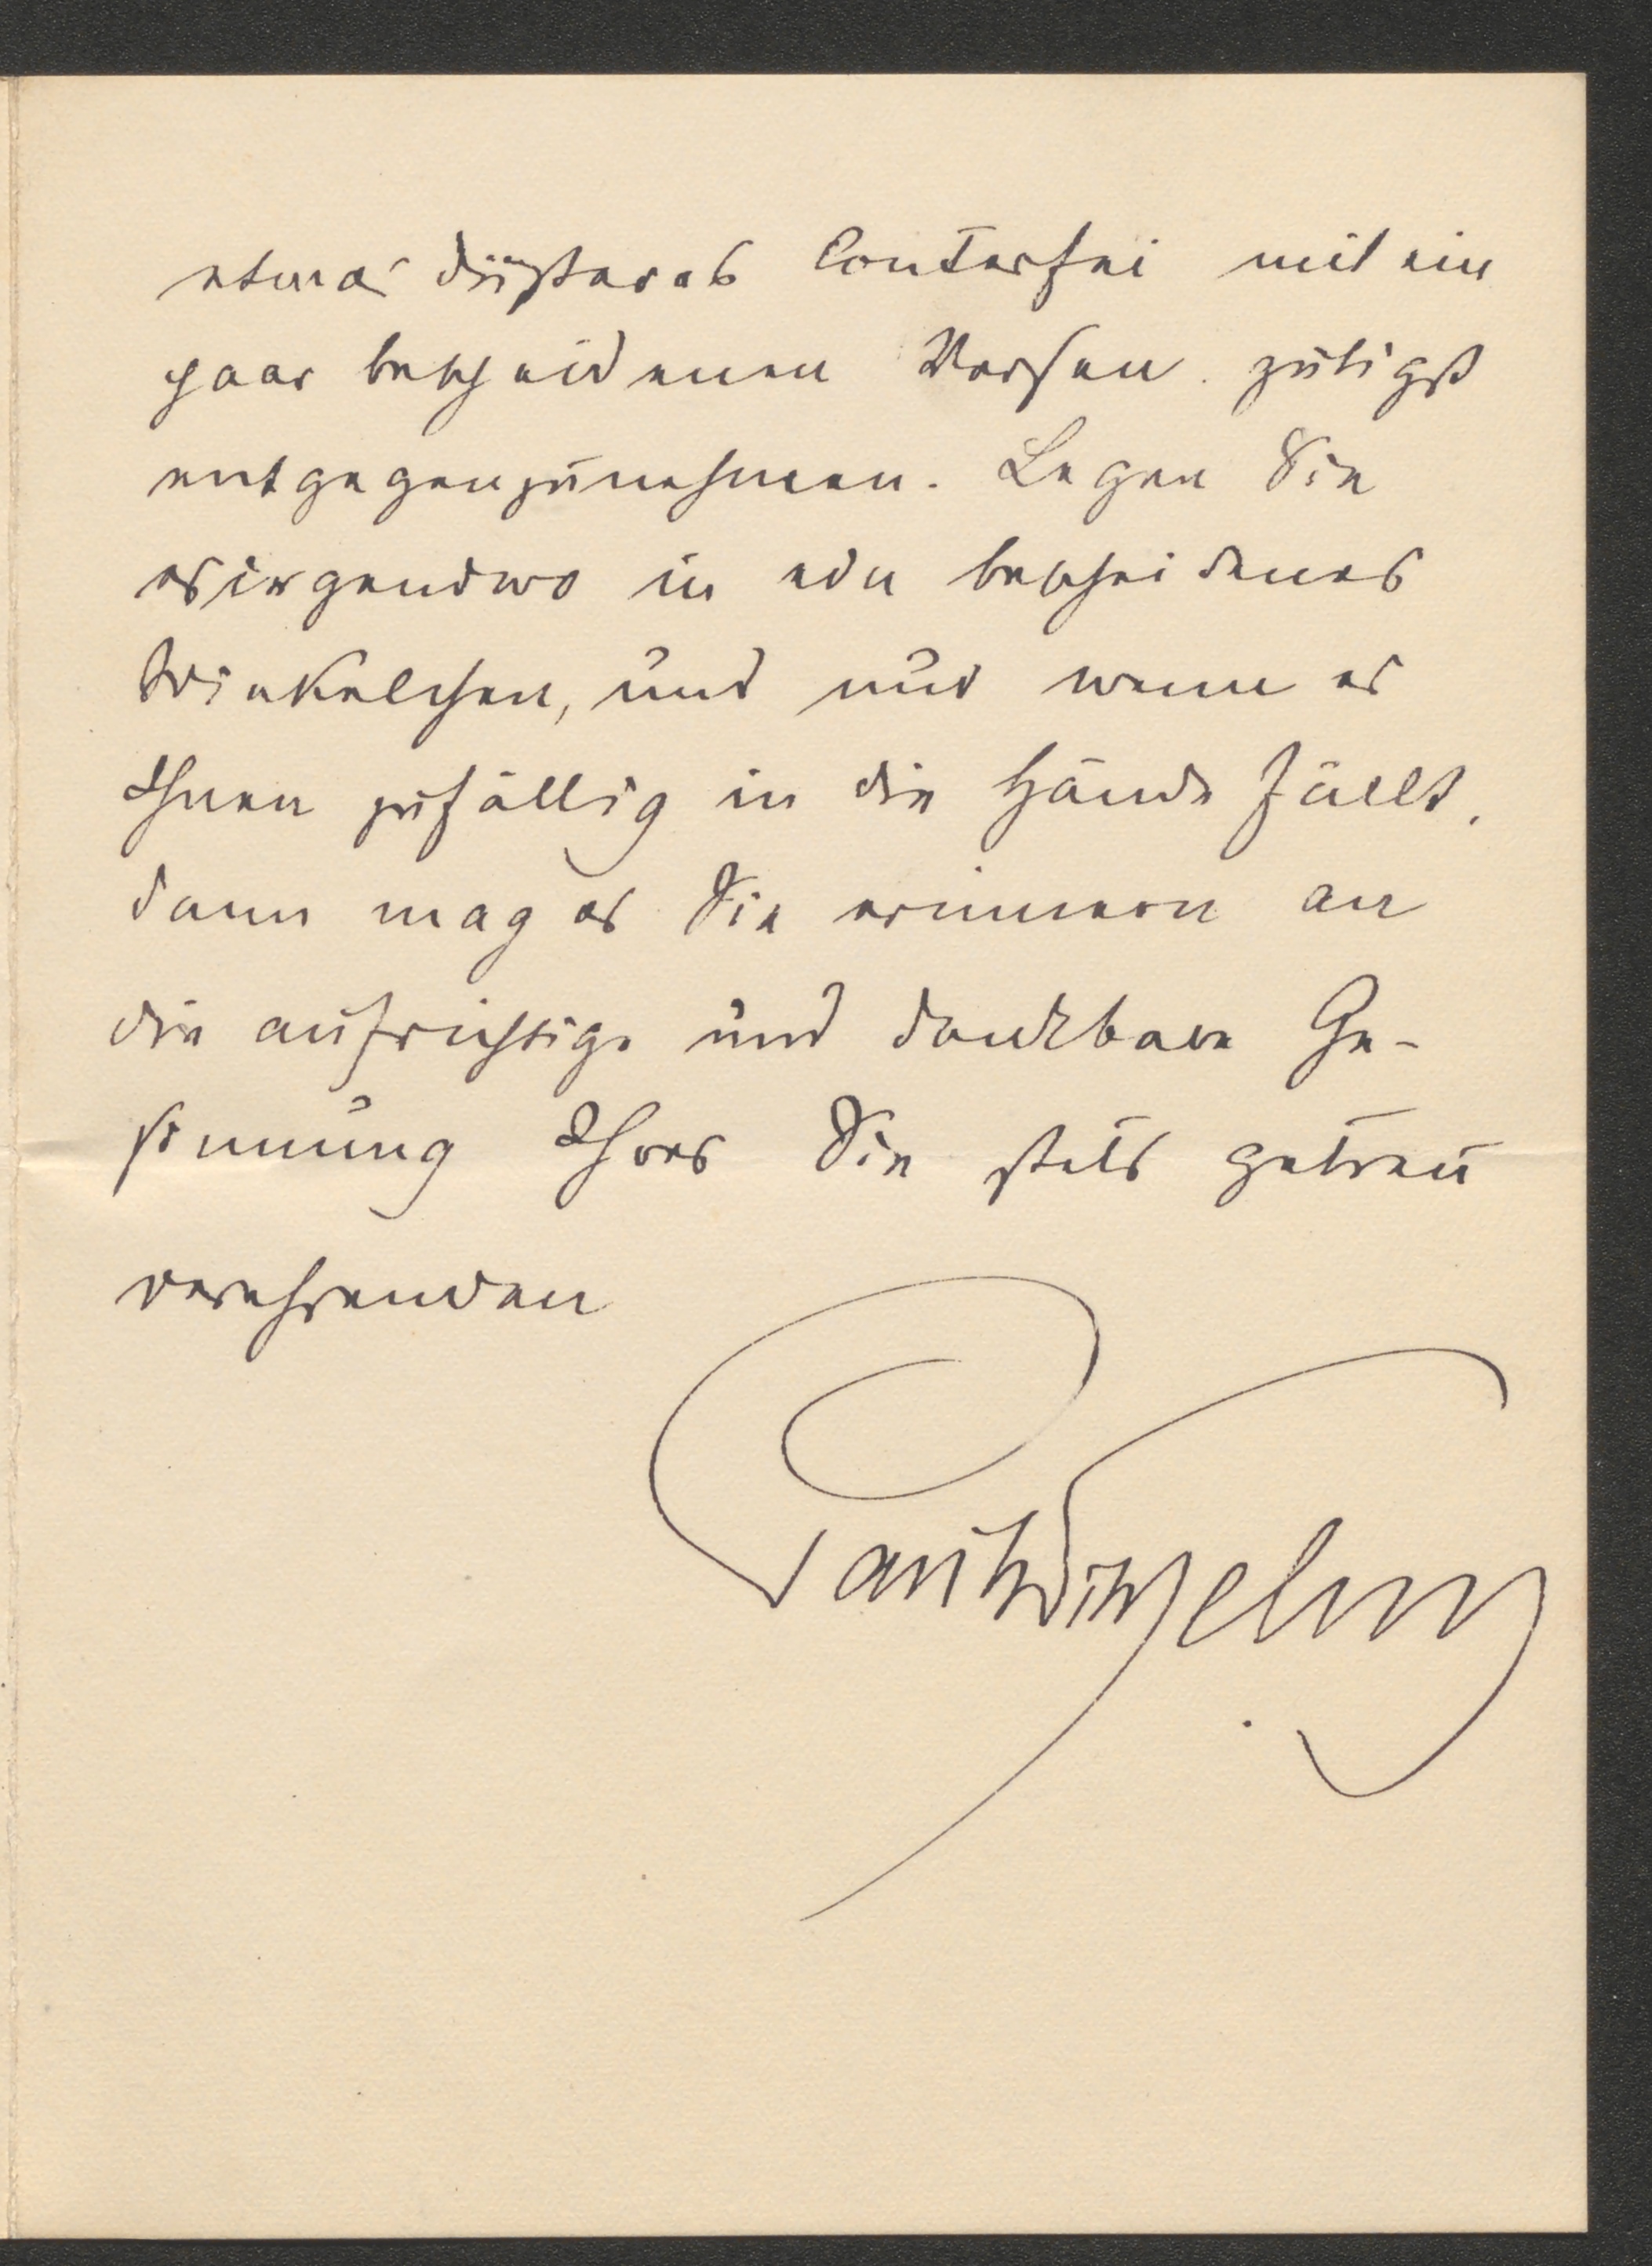 etwas düsteres Conterfei mit ein
paar bescheidenen Versen gütigst
entgegenzunehmen. Legen Sie
es irgendwo in ein bescheidenes
Winkelchen, und nur wenn es
Ihnen zufällig in die Hände fällt,
dann mag es Sie erinnern an
die aufrichtige und dankbare Ge-
sinnung Ihres Sie stets getreu
verehrenden
Paul Wilhelm